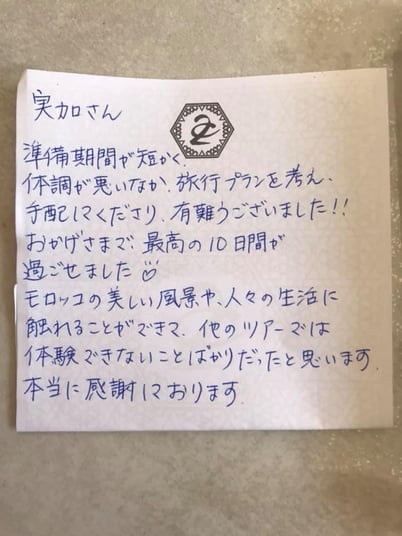 実加さん
準備期間が短かく、
体調が悪いなか、旅行プランを考え、
手配してくださり、有難うございました!!
おかげさまで、最高の10日間が
過ごせました
モロッコの美しい風景や、人々の生活に
触れることができて、他のツアーでは
体験できないことばかりだったと思います。
本当に感謝しております。